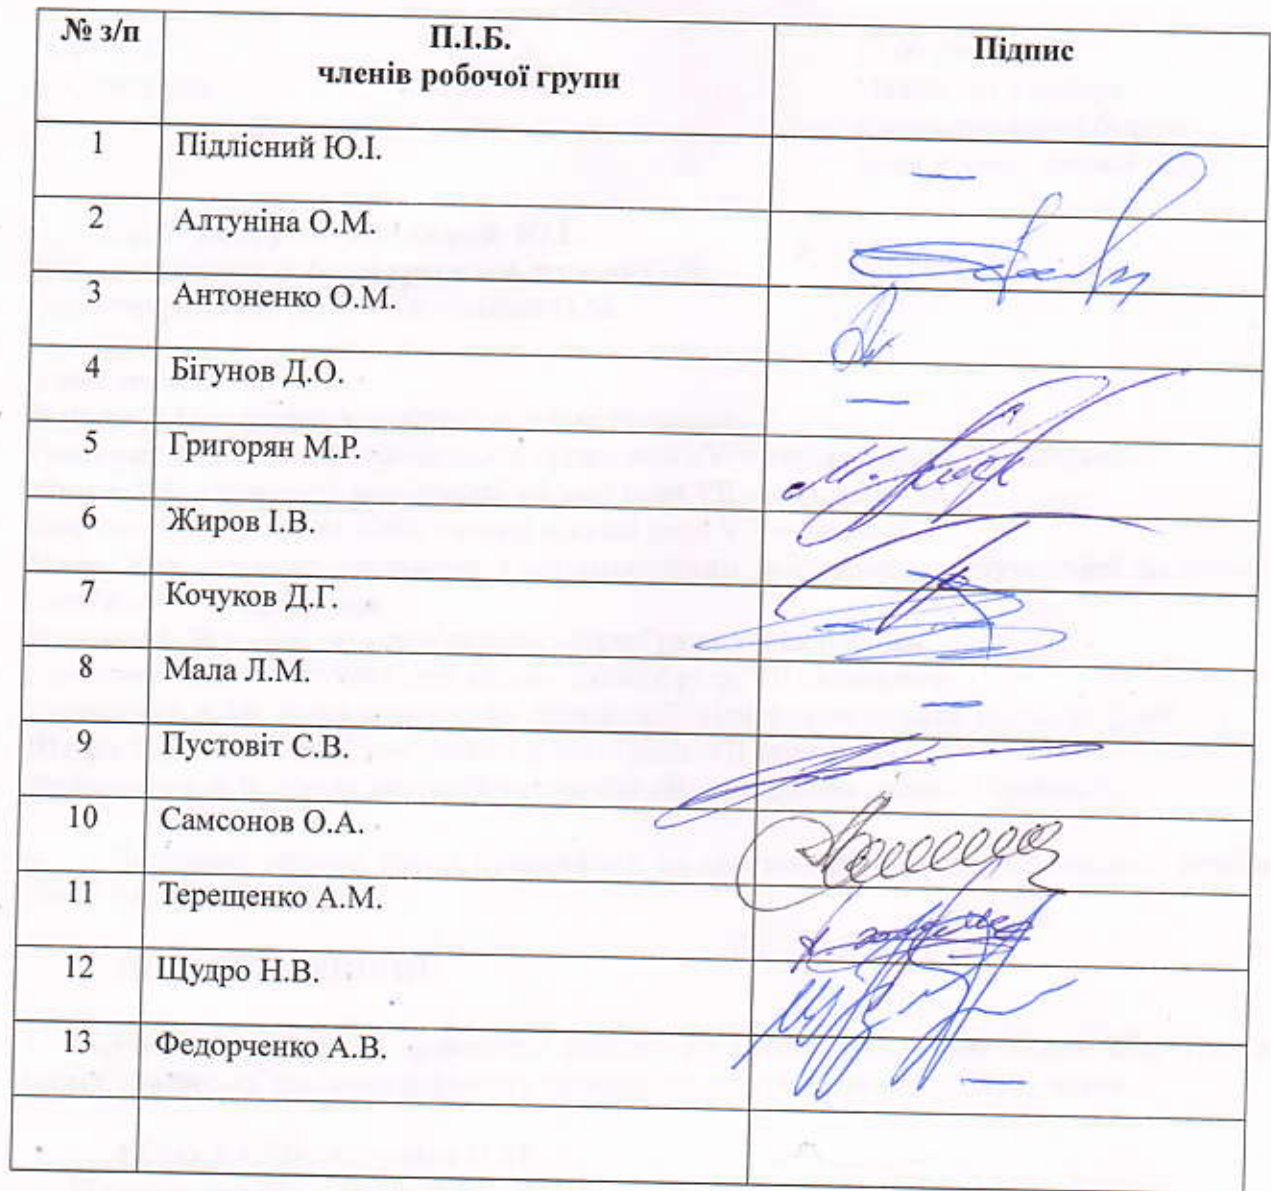 № з/п П.І.Б. Підпис
членів робочої групи
1 Підлісний Ю.І. —
2 Алтуніна О.М.
3 Антоненко О.М.
4 Бігунов Д.О. —
5 Григорян М.Р.
6 Жиров І.В.
7 Кочуков Д.Г.
8 Мала Л.М. —
9 Пустовіт С.В.
10 Самсонов О.А.
11 Терещенко А.М.
12 Щудро Н.В.
13 Федорченко А.В. —